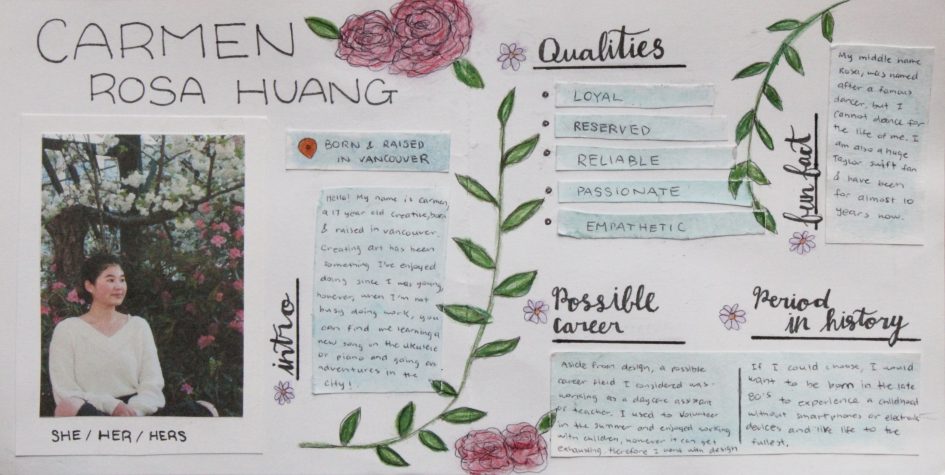 CARMEN
ROSA HUANG
SHE/HER/HERS
BORN & RAISED
IN VANCOUVER
intro
Hello! My name is Carmen,
a 17 year old creative, born
& raised in Vancouver.
Creating art has been
something I've enjoyed
doing since I was young,
however, when I'm not
busy doing work, you
can find me learning a
new song on the ukulele
or piano and going on
adventures in the
city!
Qualities
LOYAL
RESERVED
RELIABLE
PASSIONATE
EMPATHETIC
fun fact
My middle name
Rosa, was named
after a famous
dancer, but I
cannot dance for
the life of me. I
am also a huge
Taylor Swift fan
& have been
for almost 10
years now.
Possible
career
Aside from design, a possible
career field I considered was
working as a daycare assistant
or teacher. I used to volunteer
in the summer and enjoyed working
with children, however it can get
exhausting therefore I went with design
Period
in history
If I could choose, I would
want to be born in the late
80's to experience a childhood
without smartphones or electronic
devices and live life to the
fullest.